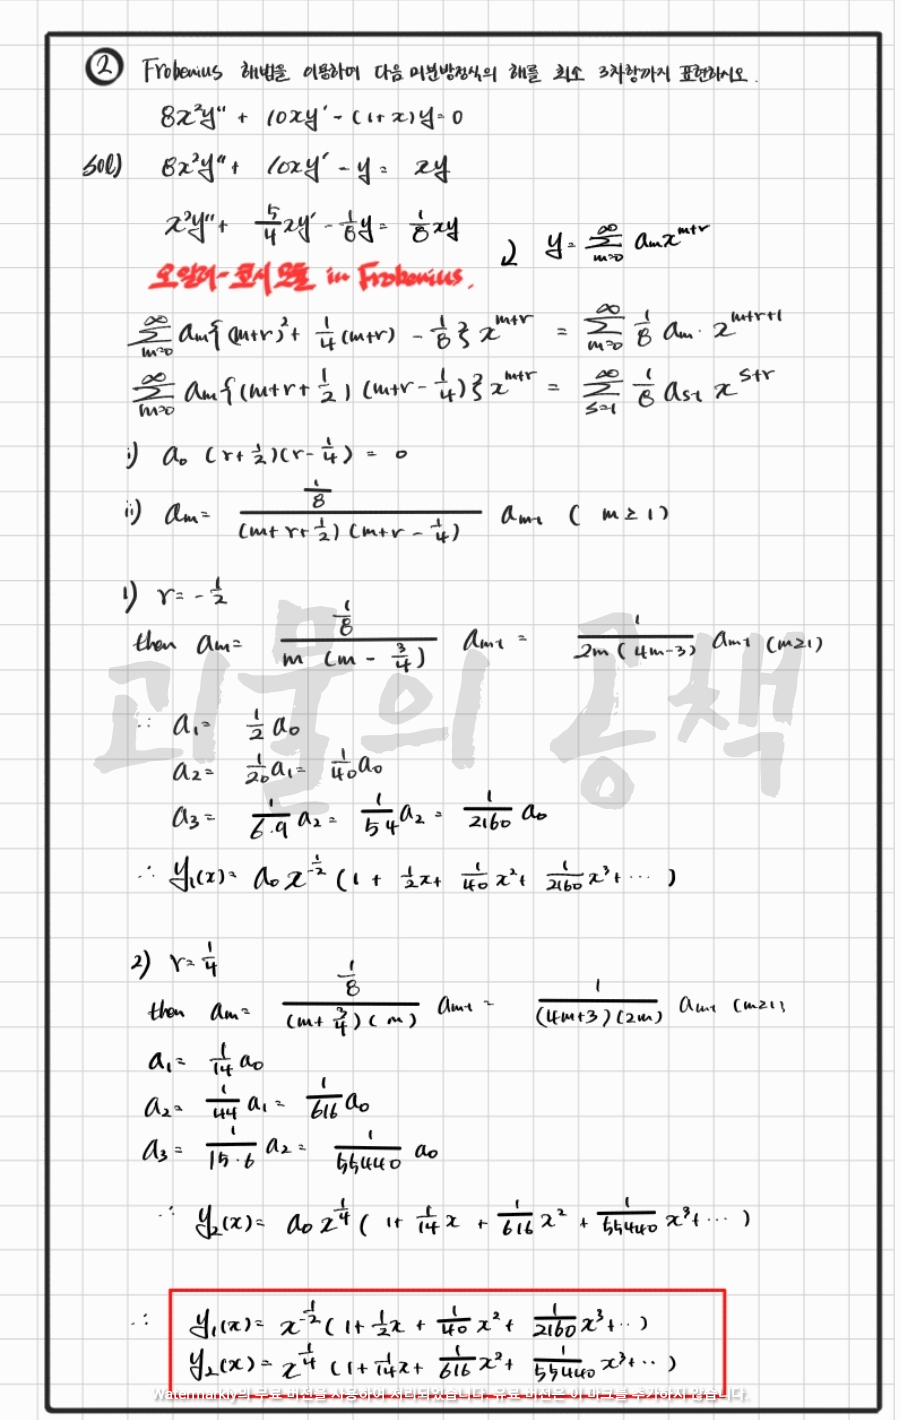 ② Frobenius 해법을 이용하여 다음 미분방정식의 해를 최소 3차항까지 표현하시오.
8x²y'' + 10xy' - (1+x)y = 0
sol) 8x²y'' + 10xy' - y = xy
x²y'' + 5/4 xy' - 1/8 y = 1/8 xy
) y = ∑_{m=0}^{∞} aₘx^{m+r}
오일러-코시 모듈 in Frobenius.
∑_{m=0}^{∞} aₘ{(m+r)² + 1/4 (m+r) - 1/8} x^{m+r} = ∑_{m=0}^{∞} 1/8 aₘ · x^{m+r+1}
∑_{m=0}^{∞} aₘ{(m+r+1/2)(m+r-1/4)} x^{m+r} = ∑_{s=1}^{∞} 1/8 a_{s-1} x^{s+r}
i) a₀ (r+1/2)(r-1/4) = 0
ii) aₘ = (1/8)/((m+r+1/2)(m+r-1/4)) a_{m-1} (m≥1)
1) r = -1/2
then aₘ = (1/8)/(m(m-3/4)) a_{m-1} = 1/(2m(4m-3)) a_{m-1} (m≥1)
∴ a₁ = 1/2 a₀
a₂ = 1/20 a₁ = 1/40 a₀
a₃ = 1/(6·9) a₂ = 1/54 a₂ = 1/2160 a₀
∴ y₁(x) = a₀x^{-1/2} (1 + 1/2 x + 1/40 x² + 1/2160 x³ + ···)
2) r = 1/4
then aₘ = (1/8)/((m+3/4)(m)) a_{m-1} = 1/((4m+3)(2m)) a_{m-1} (m≥1)
a₁ = 1/14 a₀
a₂ = 1/44 a₁ = 1/616 a₀
a₃ = 1/(15·6) a₂ = 1/55440 a₀
∴ y₂(x) = a₀x^{1/4} (1 + 1/14 x + 1/616 x² + 1/55440 x³ + ···)
∴ y₁(x) = x^{-1/2} (1 + 1/2 x + 1/40 x² + 1/2160 x³ + ··)
y₂(x) = x^{1/4} (1 + 1/14 x + 1/616 x² + 1/55440 x³ + ··)
괴물의 공책
Watermarkly의 무료 버전을 사용하여 처리되었습니다. 유료 버전은 이 마크를 추가하지 않습니다.